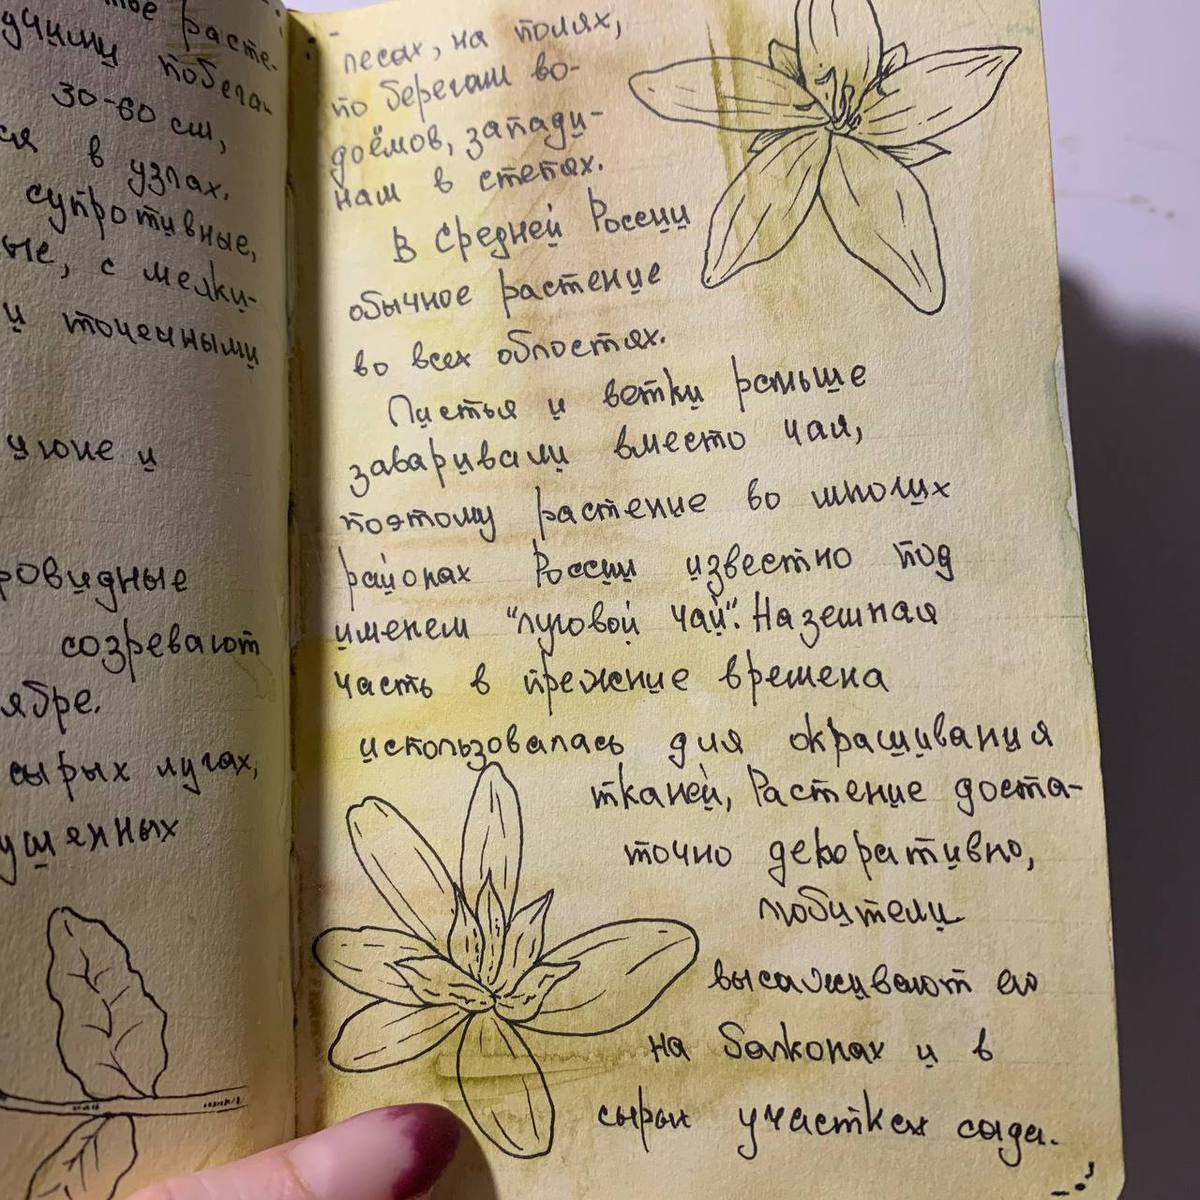 расте-
побега-
30-60 см,
ся в узлах.
супротивные,
ые, с мелки-
и точечными
июне и
ровидные
созревают
ябре.
сырых лугах,
ушенных
лесах, на полях,
по берегам во-
доёмов, западн-
нам в степях.
В Средней России
обычное растение
во всех областях.
Листья и ветки раньше
заваривали вместо чая,
поэтому растение во многих
районах России известно под
именем "луговой чай". Наземная
часть в прежние времена
использовалась для окрашивания
тканей, Растение доста-
точно декоративно,
любители
высаживают его
на балконах и в
сырых участках сада.